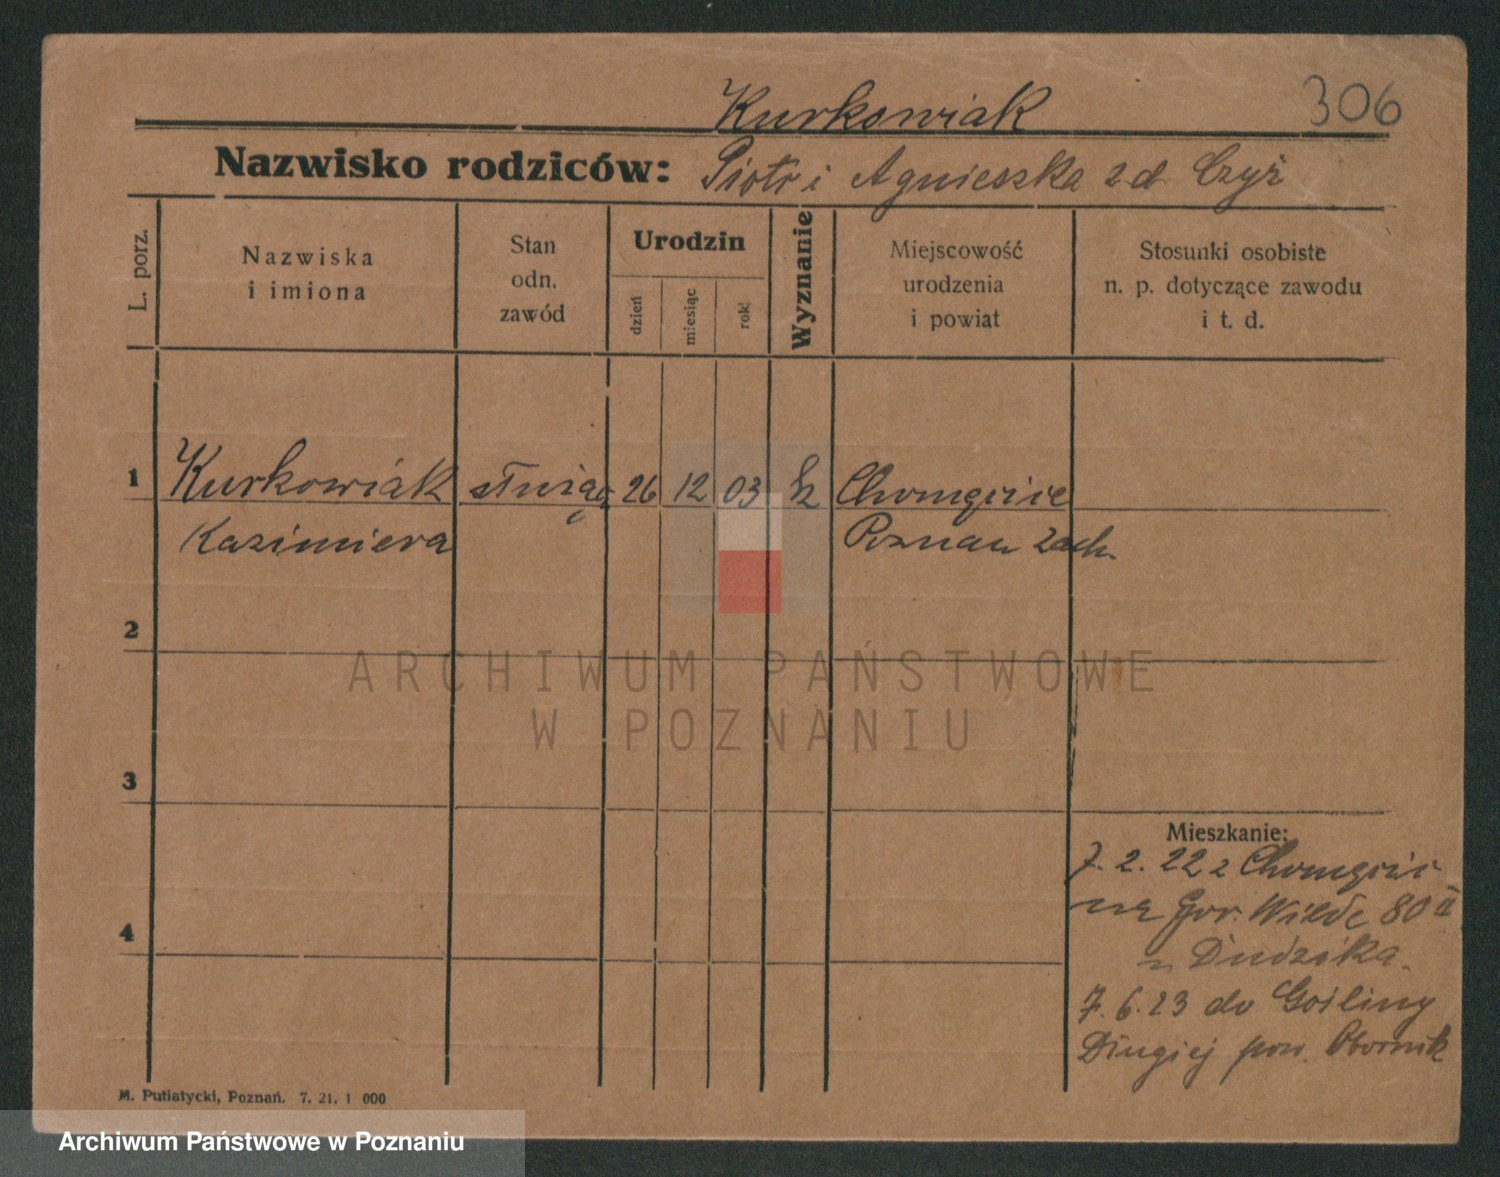 306
Kurkowiak
Nazwisko rodziców: Piotr i Agnieszka z d Czyż
L. porz.
Nazwiska
i imiona
Stan
odn.
zawód
Urodzin
dzień
miesiąc
rok
Wyznanie
Miejscowość
urodzenia
i powiat
Stosunki osobiste
n. p. dotyczące zawodu
i t. d.
1 Kurkowiak służąc 26 12 03 Chomęcice
Kazimiera Poznań Zach.
2
3
4
ARCHIWUM PAŃSTWOWE
W POZNANIU
Mieszkanie:
7. 2. 22 z Chomęcic
na Gór. Wilde 80 II
u Dudzika.
7. 6. 23 do Gośliny
Długiej pow. Obornik
M. Putiatycki, Poznań. 7. 21. 1 000
Archiwum Państwowe w Poznaniu